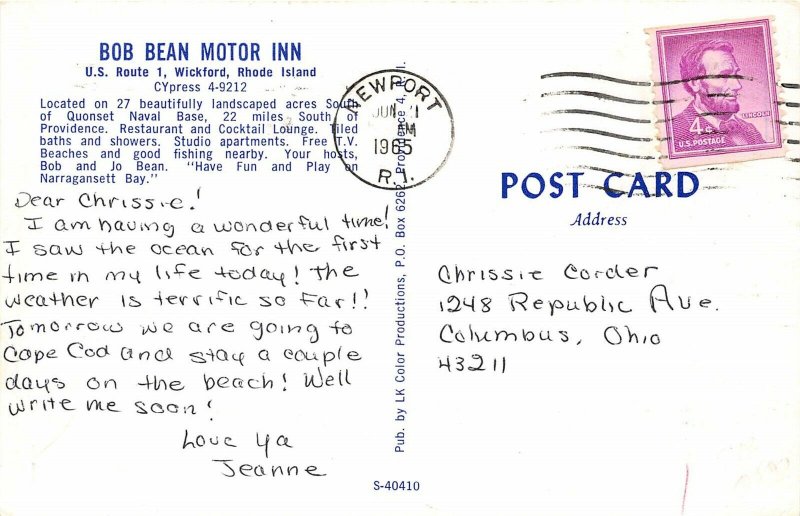 BOB BEAN MOTOR INN
U.S. Route 1, Wickford, Rhode Island
CYpress 4-9212
Located on 27 beautifully landscaped acres South
of Quonset Naval Base, 22 miles South of
Providence. Restaurant and Cocktail Lounge. Tiled
baths and showers. Studio apartments. Free T.V.
Beaches and good fishing nearby. Your hosts,
Bob and Jo Bean. "Have Fun and Play on
Narragansett Bay."
Dear Chrissie!
I am having a wonderful time!
I saw the ocean for the first
time in my life today! The
weather is terrific so far!!
Tomorrow we are going to
Cape Cod and stay a couple
days on the beach! Well
write me soon!
Love ya
Jeanne
Pub. by LK Color Productions, P.O. Box 6262, Providence 4, R.I.
S-40410
NEWPORT
JUN
M
1965
R.I.
4¢
LINCOLN
U.S. POSTAGE
POST CARD
Address
Chrissie Corder
1248 Republic Ave.
Columbus, Ohio
43211